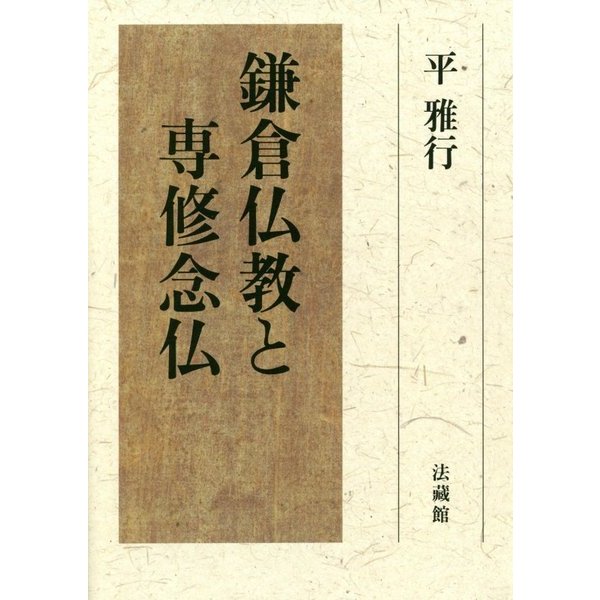 平 雅行
鎌倉仏教と
専修念仏
法藏館